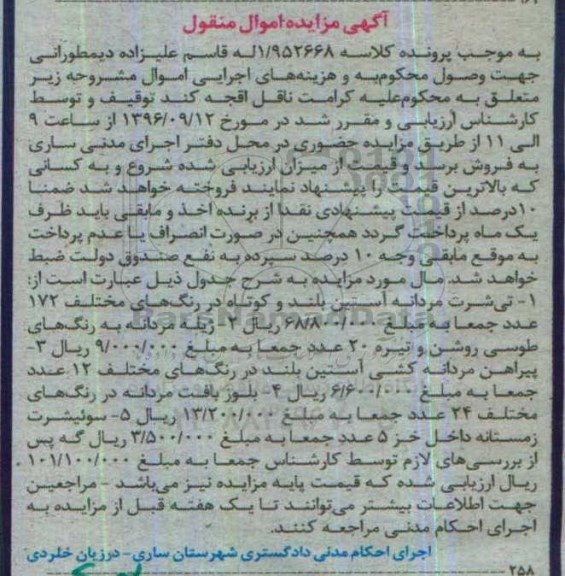 آگهی مزایده اموال منقول
به موجب پرونده کلاسه ۱/۹۵۲۶۶۸له قاسم علیزاده دیمطورانی
جهت وصول محکوم‌به و هزینه‌های اجرایی اموال مشروحه زیر
متعلق به محکوم‌علیه کرامت ناقل اقجه کند توقیف و توسط
کارشناس ارزیابی و مقرر شد در مورخ ۱۳۹۶/۰۹/۱۲ از ساعت ۹
الی ۱۱ از طریق مزایده حضوری در محل دفتر اجرای مدنی ساری
به فروش برسد وقیمت از میزان ارزیابی شده شروع و به کسانی
که بالاترین قیمت را پیشنهاد نمایند فروخته خواهد شد ضمنا
۱۰درصد از قیمت پیشنهادی نقدا از برنده اخذ و مابقی باید ظرف
یک ماه پرداخت گردد همچنین در صورت انصراف یا عدم پرداخت
به موقع مابقی وجه ۱۰ درصد سپرده به نفع صندوق دولت ضبط
خواهد شد. مال مورد مزایده به شرح جدول ذیل عبارت است از:
۱- تی‌شرت مردانه آستین بلند و کوتاه در رنگ‌های مختلف ۱۷۲
عدد جمعا به مبلغ ۶۸/۸۰۰/۰۰۰ ریال ۲- ژیله مردانه به رنگ‌های
طوسی روشن و تیره ۲۰ عدد جمعا به مبلغ ۹/۰۰۰/۰۰۰ ریال ۳-
پیراهن مردانه کشی آستین بلند در رنگ‌های مختلف ۱۲ عدد
جمعا به مبلغ ۶/۶۰۰/۰۰۰ ریال ۴- بلوز بافت مردانه در رنگ‌های
مختلف ۲۴ عدد جمعا به مبلغ ۱۳/۲۰۰/۰۰۰ ریال ۵- سوئیشرت
زمستانه داخل خز ۵ عدد جمعا به مبلغ ۳/۵۰۰/۰۰۰ ریال گه پس
از بررسی‌های لازم توسط کارشناس جمعا به مبلغ ۱۰۱/۱۰۰/۰۰۰
ریال ارزیابی شده که قیمت پایه مزایده نیز می‌باشد - مراجعین
جهت اطلاعات بیشتر می‌توانند تا یک هفته قبل از مزایده به
اجرای احکام مدنی مراجعه کنند.
اجرای احکام مدنی دادگستری شهرستان ساری- درزیان خلردی
۲۵۸